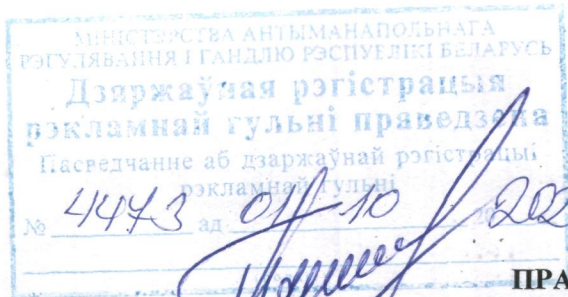 МІНІСТЭРСТВА АНТЫМАНАПОЛЬНАГА
РЭГУЛЯВАННЯ І ГАНДЛЮ РЭСПУБЛІКІ БЕЛАРУСЬ
Дзяржаўная рэгістрацыя
рэкламнай гульні праведзена
Пасведчанне аб дзаржаўнай рэгістрацыі
рэкламнай гульні
№ 4473 ад 01 10 202
ПРА